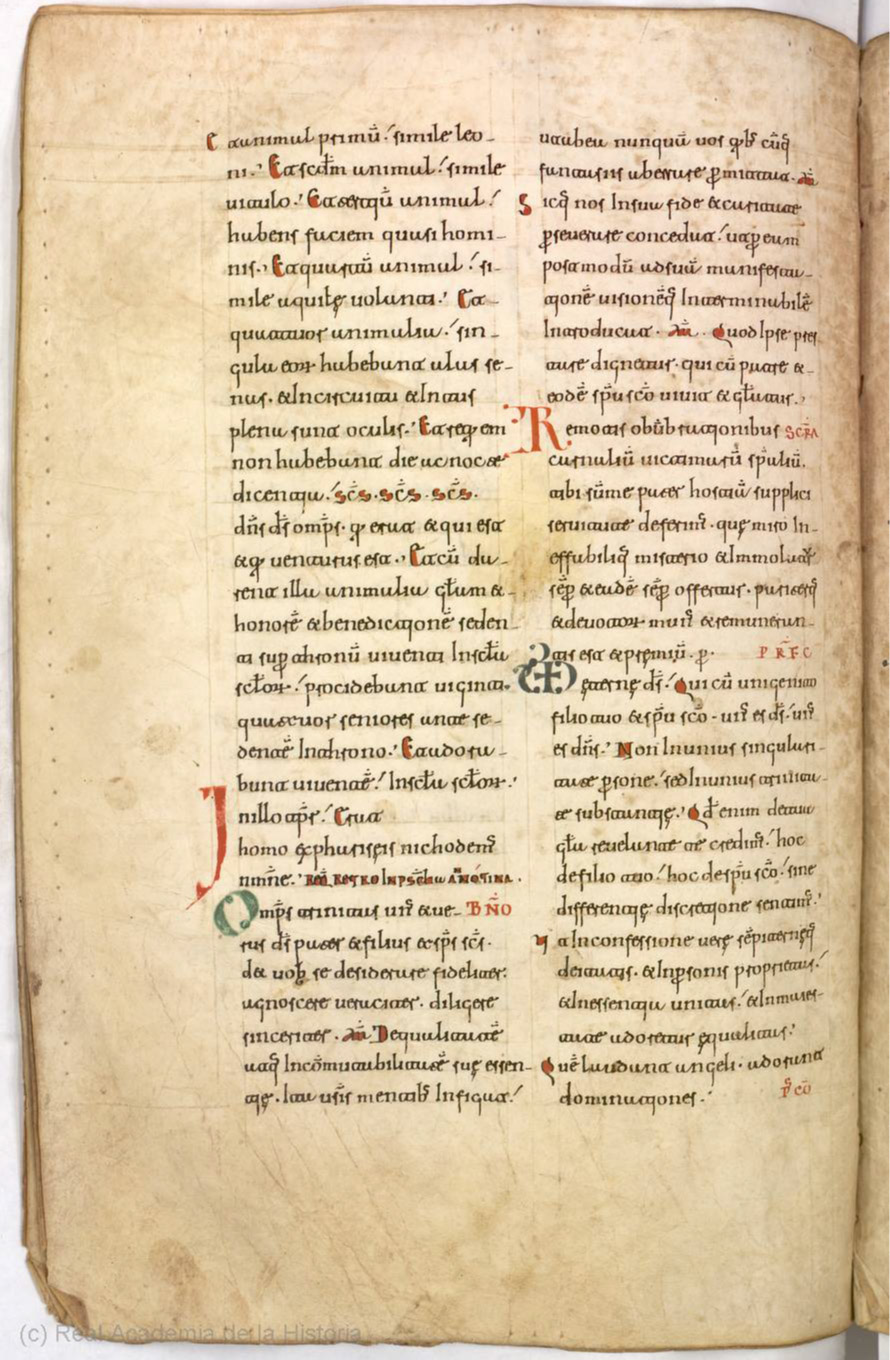 Et animul primū simile leo-
ni. Et scdm̄ animal simile
uitulo. Et tertiū animal
habens faciem quasi homi-
nis. Et quartū animal si-
mile aquilę uolanti. Et
quattuor animalia sin-
gula eoꝝ habebant alas se-
nas. & In circuitu & Intus
plena sunt oculis. Et requiem
non habebant die ac nocte
dicentia. scs̄. scs̄. scs̄.
dn̄s ds̄ omp̄s. qi erat & qui est
& qi uenturus est. Et cū da-
rent illa animalia gl̄am &
honorē & benedictionē seden-
ti sup̄ thronū uiuenti In scl̄a
scl̄oꝝ. procidebant uiginti
quattuor seniores ante se-
dentē In throno. Et adora-
bant uiuentē In scl̄a scl̄oꝝ.
In illo tp̄r. Erat
homo ex phariseis nichodem̄
nomine.
Omp̄s trinitas un̄s & ue- BN̄O
rus ds̄ pater & filius & sp̄s scs̄.
det uob̄ se desiderare fideliter.
agnoscere ueraciter. diligere
sinceriter. am̄ Dequalitatē
atq̄ Incōmutabilitatē suę essen-
tię. Ita ūsis mentib̄ Infigat
ut ab ea nunquā uos qib̄ cūq̄
fantasiis aberrare p̄mittat. am̄
Sicq̄ nos In sua fide & caritate
p̄seuerare concedat. ut p̄ eam
postmodū ad suā manifesta-
tionē uisionēq̄ Interminabilē
Introducat. am̄. Quod Ipse pres
tare dignetur. qui cū patre &
eodē sp̄u sc̄o uiuit & gl̄atur.
Remotis obūbrationibus SCR̄A
carnaliū uictimarū sp̄ualiū.
tibi sūme pater hostiā supplici
seruitute deferim̄. quę miro In-
effabiliq̄ misterio & Immolatur
sēp̄ & eadē sēp̄ offertur. pariterq̄
& deuotoꝝ mun̄ & remuneran-
tis est & pręmiū. p̄. PRF̄C
ęterne ds̄. Qui cū unigenito
filio tuo & sp̄u sc̄o. un̄s es ds̄. un̄s
es dn̄s. Non In unius singulari-
tate p̄sone. sed In unius trinita-
te substantię. Qd̄ enim de tua
gl̄a reuelante te credim̄. hoc
de filio tuo. hoc de sp̄u sc̄o. sine
differentię discretione sentim̄.
Vt In confessione uerę sēpiternęq̄
deitatis. & In p̄sonis proprietas.
& In essentia unitas. & In maies-
tate adoretur ęqualitas.
Quē laudant angeli. adorant
dominationes. P̄ CŌ